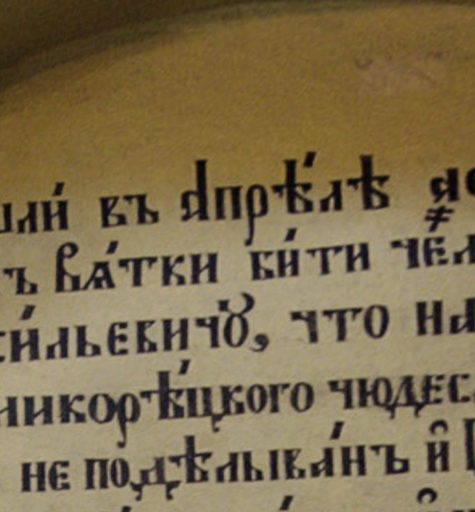 шлѝ въ а҆прѣ́лѣ ҂а
ъ вѧ́тки би́ти чел
си́льевичꙋ, что на
ликорѣ́цкого чюдес
не подѣлыва́нъ и҆